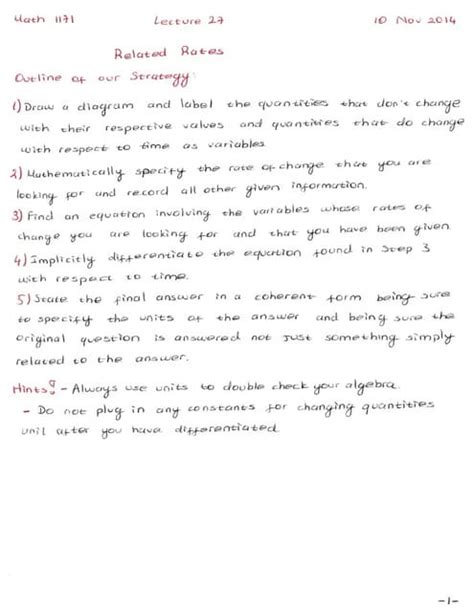 Math 1171 Lecture 27 10 Nov 2014
Related Rates
Outline of our Strategy:
1) Draw a diagram and label the quantities that don't change
with their respective values and quantities that do change
with respect to time as variables
2) Mathematically specify the rate of change that you are
looking for and record all other given information.
3) Find an equation involving the variables whose rates of
change you are looking for and that you have been given
4) Implicitly differentiate the equation found in Step 3
with respect to time.
5) State the final answer in a coherent form being sure
to specify the units of the answer and being sure the
original question is answered not just something simply
related to the answer.
Hints! - Always use units to double check your algebra.
- Do not plug in any constants for changing quantities
unil after you have differentiated
-1-